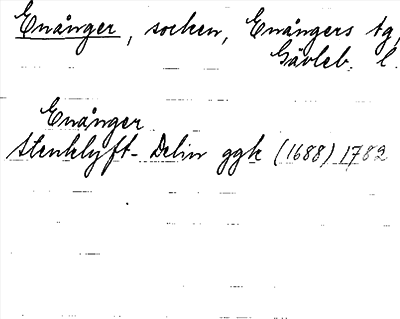 Enånger, socken, Enångers tg,
Gävleb. l.
Enånger
Stenklyft- Delin ggk (1688) 1782